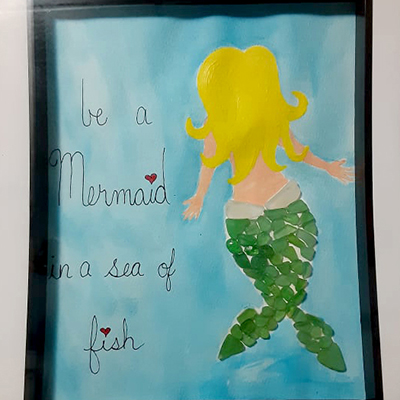 be a
Mermaid
in a sea of
fish